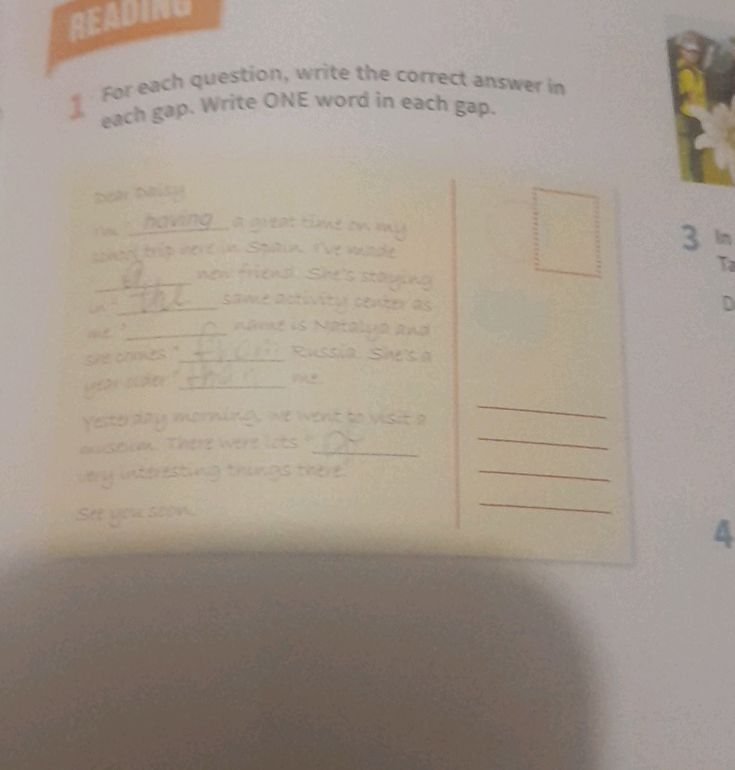 READING
1 For each question, write the correct answer in
each gap. Write ONE word in each gap.
Dear Daisy
I'm having a great time on my
school trip here in Spain. I've made
a new friend. She's staying
in the same activity center as
me. name is Natalya and
she comes from Russia. She's a
year older than me.
Yesterday morning, we went to visit a
museum. There were lots of
very interesting things there.
See you soon.
3 In
Ta
D
4